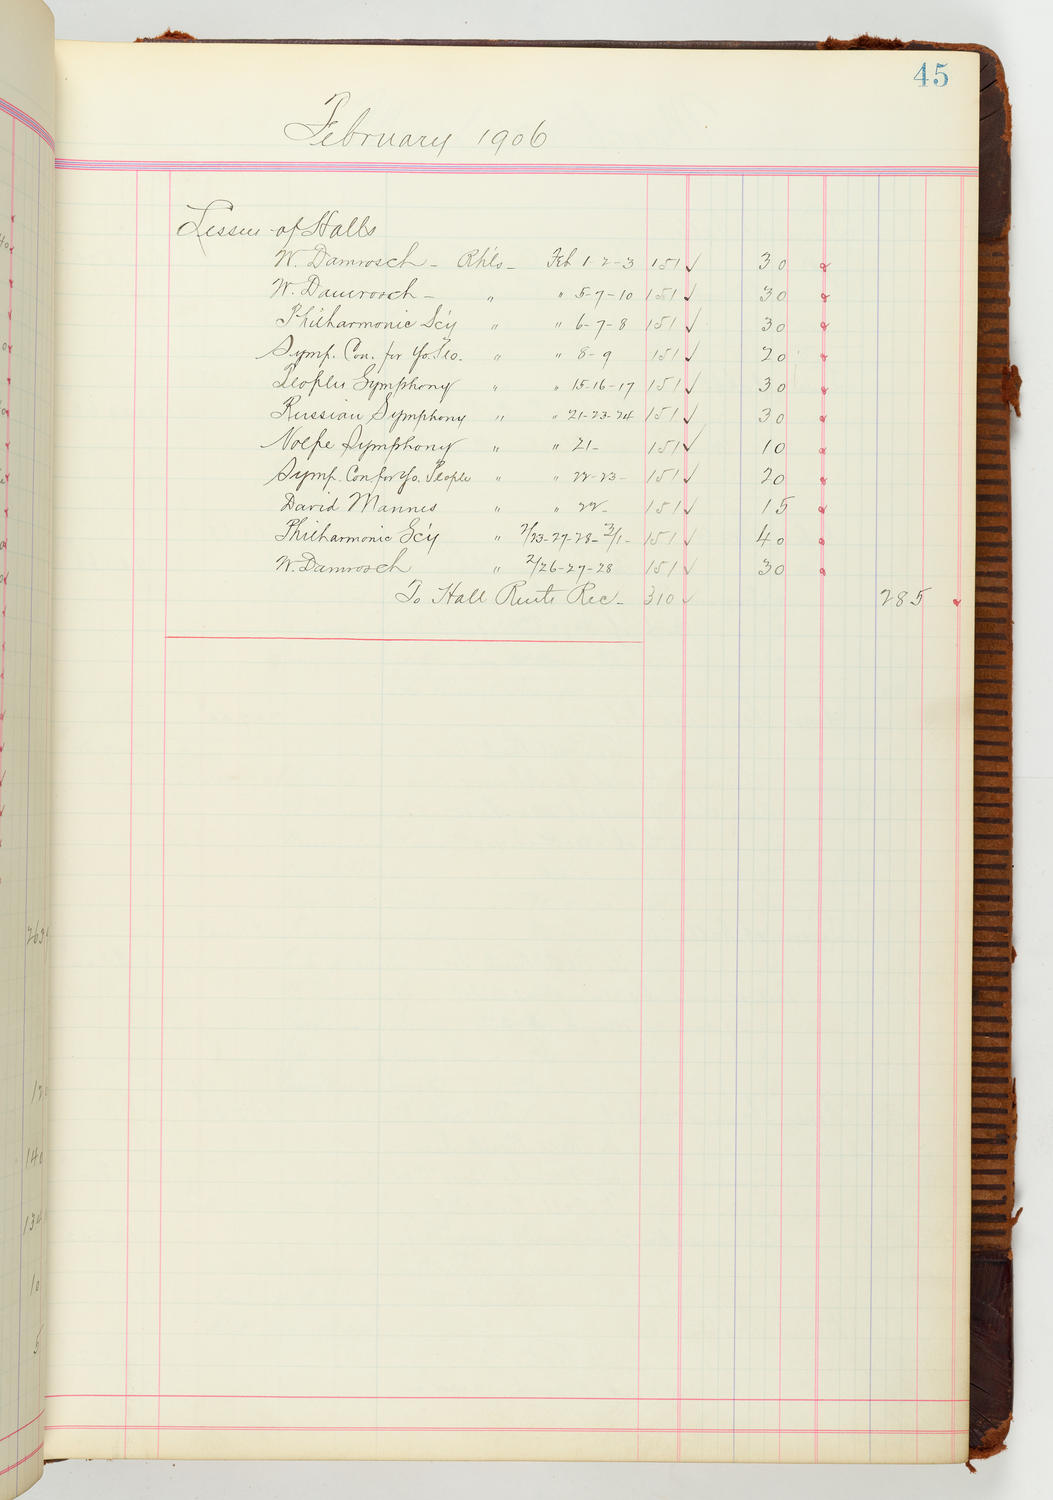 45
February 1906
Lessees of Halls
W. Damrosch - Rhls - Feb 1-2-3 151 ✓ 30
W. Damrosch - " " 5-7-10 151 ✓ 30
Philharmonic Sc'y " " 6-7-8 151 ✓ 30
Symp. Con. for Yo. Peo. " " 8-9 151 ✓ 20
Peoples Symphony " " 15-16-17 151 ✓ 30
Russian Symphony " " 21-23-24 151 ✓ 30
Volpe Symphony " " 21- 151 ✓ 10
Symp. Con for Yo. People " " 22-23- 151 ✓ 20
David Mannes " " 22- 151 ✓ 15
Philharmonic Sc'y " 2/23-27-28-3/1- 151 ✓ 40
W. Damrosch " 2/26-27-28 151 ✓ 30
To Hall Rents Rec- 310 ✓ 285
263
140
10
5